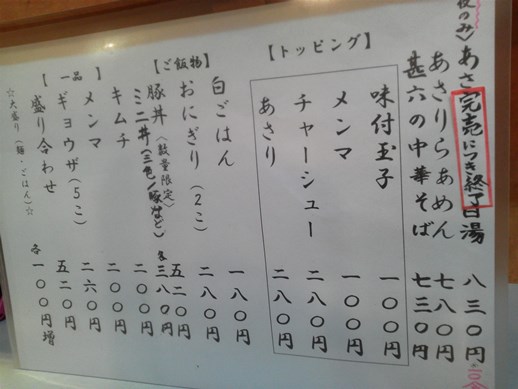 夜のみ) あさ完売につき終了白湯 八三〇円
あさりらあめん 七八〇円
甚六の中華そば 七三〇円
【トッピング】
味付玉子 一〇〇円
メンマ 一〇〇円
チャーシュー 二八〇円
あさり 二八〇円
【ご飯物】
白ごはん 一八〇円
おにぎり(2こ) 二八〇円
豚丼(数量限定) 五二〇円
ミニ丼(三色/豚など) 各三八〇円
【一品】
キムチ 二〇〇円
メンマ 二〇〇円
ギョウザ(5こ) 二六〇円
盛り合わせ 五二〇円
☆大盛り(麺・ごはん)☆ 各一〇〇円増